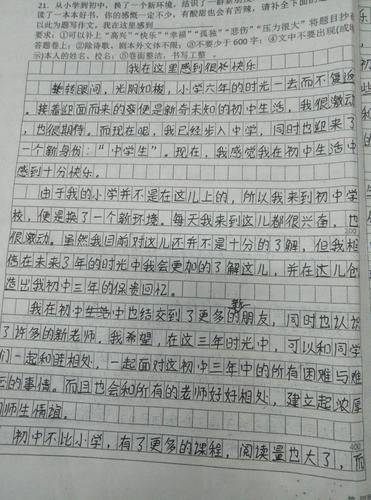 21. 从小学到初中，换了一个新环境，结识了一群新朋
读了一本本好书，你的感慨一定不少，有酸甜也会有苦辣，请补全下面的
以此为题写作文。我在这里感到
要求：①可以补上“高兴”“快乐”“幸福”“孤独”“悲伤”“压力很大”将题目抄
答题卷上；②除诗歌、剧本外文体不限；③不要少于600字；④文中不要出现（或
示）本人的姓名、校名；⑤卷面整洁，书写工整。
我在这里感到很快乐
转眼间，光阴如梭，小学六年的时光一去而不复返
。接着迎面而来的变便是新奇未知的初中生活，我很激动
，也很期待。而现在呢，我已经步入中学，同时也迎来了
一个新身份：“中学生”。现在，我感觉我在初中生活中
感到十分快乐。
由于我的小学并不是在这儿上的，所以我来到初中学
校，便是换了一个新环境。每天我来到这儿都很兴奋，也
200
很激动。虽然我目前对这儿还并不是十分的了解，但我相
信在未来了年的时光中我会更加的了解这儿，并在这儿创
造出我初中三年的保贵回忆。
我在初中生活中也结交到了更多的朋友，同时也认识
了许多的新老师，我希望，在这三年时光中，可以和同学
们一起和睦相处，一起面对这初中三年中的所有困难与难
忘的事情。而且也会和所有的老师好好相处，建立起浓厚
的师生情谊。
400
初中不比小学，有了更多的课程，阅读量也大了，而